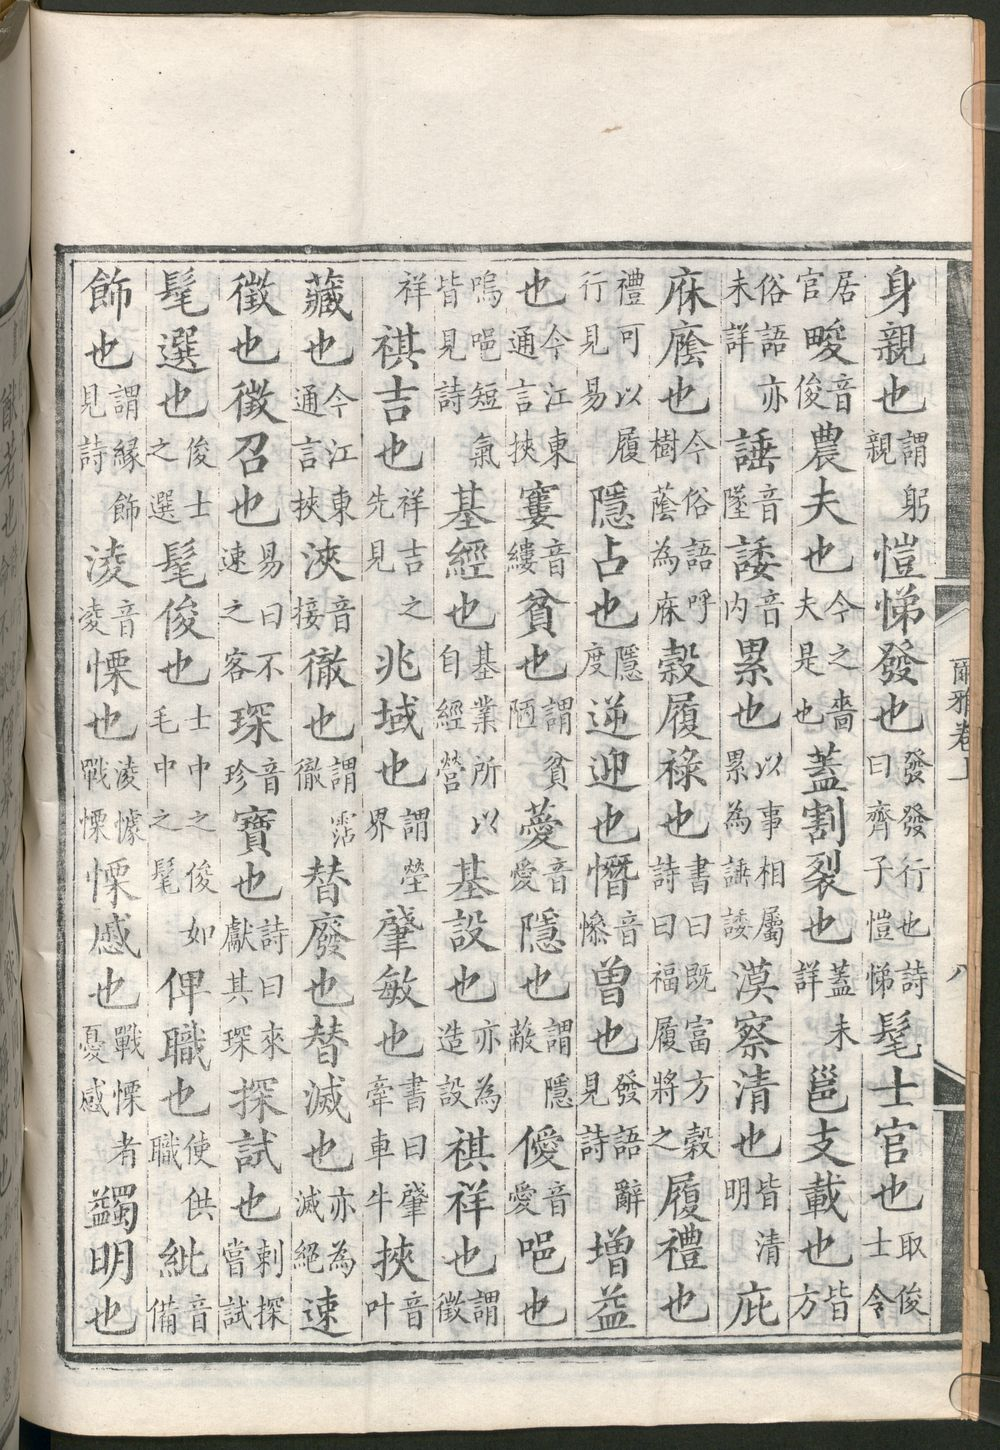 爾雅卷上 八
身親也謂躬親愷悌發也發發行也詩曰齊子愷悌髦士官也取俊士令
居官畯音俊農夫也今之嗇夫是也蓋割裂也蓋未詳邕支載也皆方
俗語亦未詳諈音墜諉音內累也以事相屬累為諈諉漠察清也皆清明庇
庥廕也今俗語呼樹蔭為庥穀履祿也書曰既富方穀詩曰福履將之履禮也
禮可以履行見易隱占也隱度逆迎也憯音慘曾也發語辭見詩增益
也今江東通言挾窶音縷貧也謂貧陋薆音愛隱也謂隱蔽僾音愛唈也
嗚唈短氣皆見詩基經也基業所以自經營基設也亦為造設祺祥也謂徵
祥祺吉也祥吉之先見兆域也謂塋界肇敏也書曰肇牽車牛挾音叶
藏也今江東通言挾浹音接徹也謂霑徹替廢也替滅也亦為滅絕速
徵也徵召也易曰不速之客琛音珍寶也詩曰來獻其琛探試也刺探嘗試
髦選也俊士之選髦俊也士中之俊如毛中之髦俾職也使供職紕音備
飾也謂緣飾見詩淩音凌慄也淩懅戰慄慄慼也戰慄者憂慼蠲明也